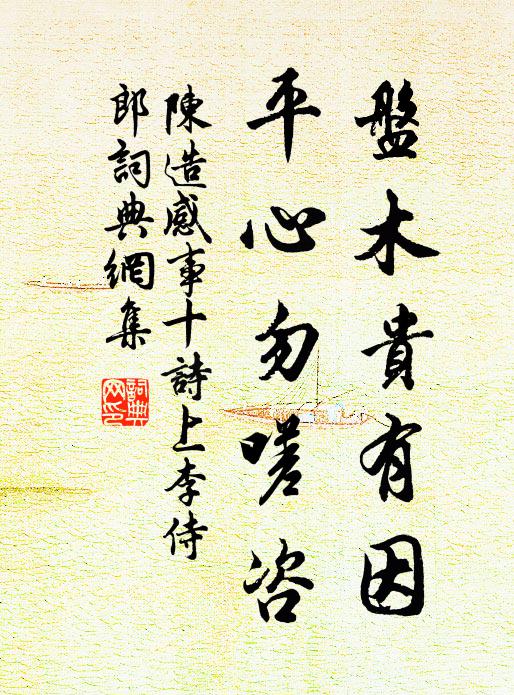 盤木貴有因
平心勿嗟咨
陳造感事十詩上李侍
郎詞典網集
詞典
网印